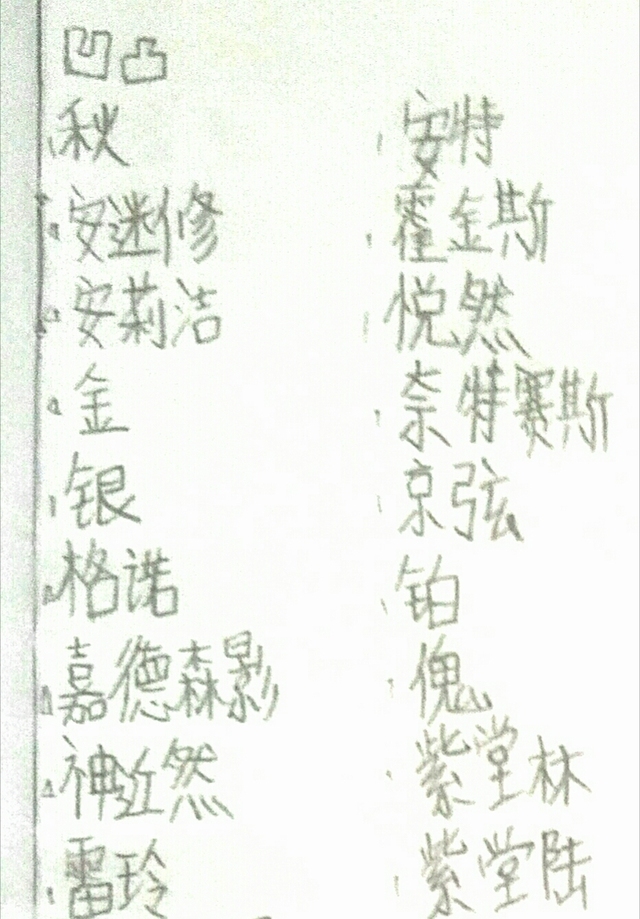 凹凸
秋
安迷修
安莉洁
金
银
格诺
嘉德森影
神近然
雷玲
安特
霍金斯
悦然
奈特赛斯
京弦
铂
傀
紫堂林
紫堂陆